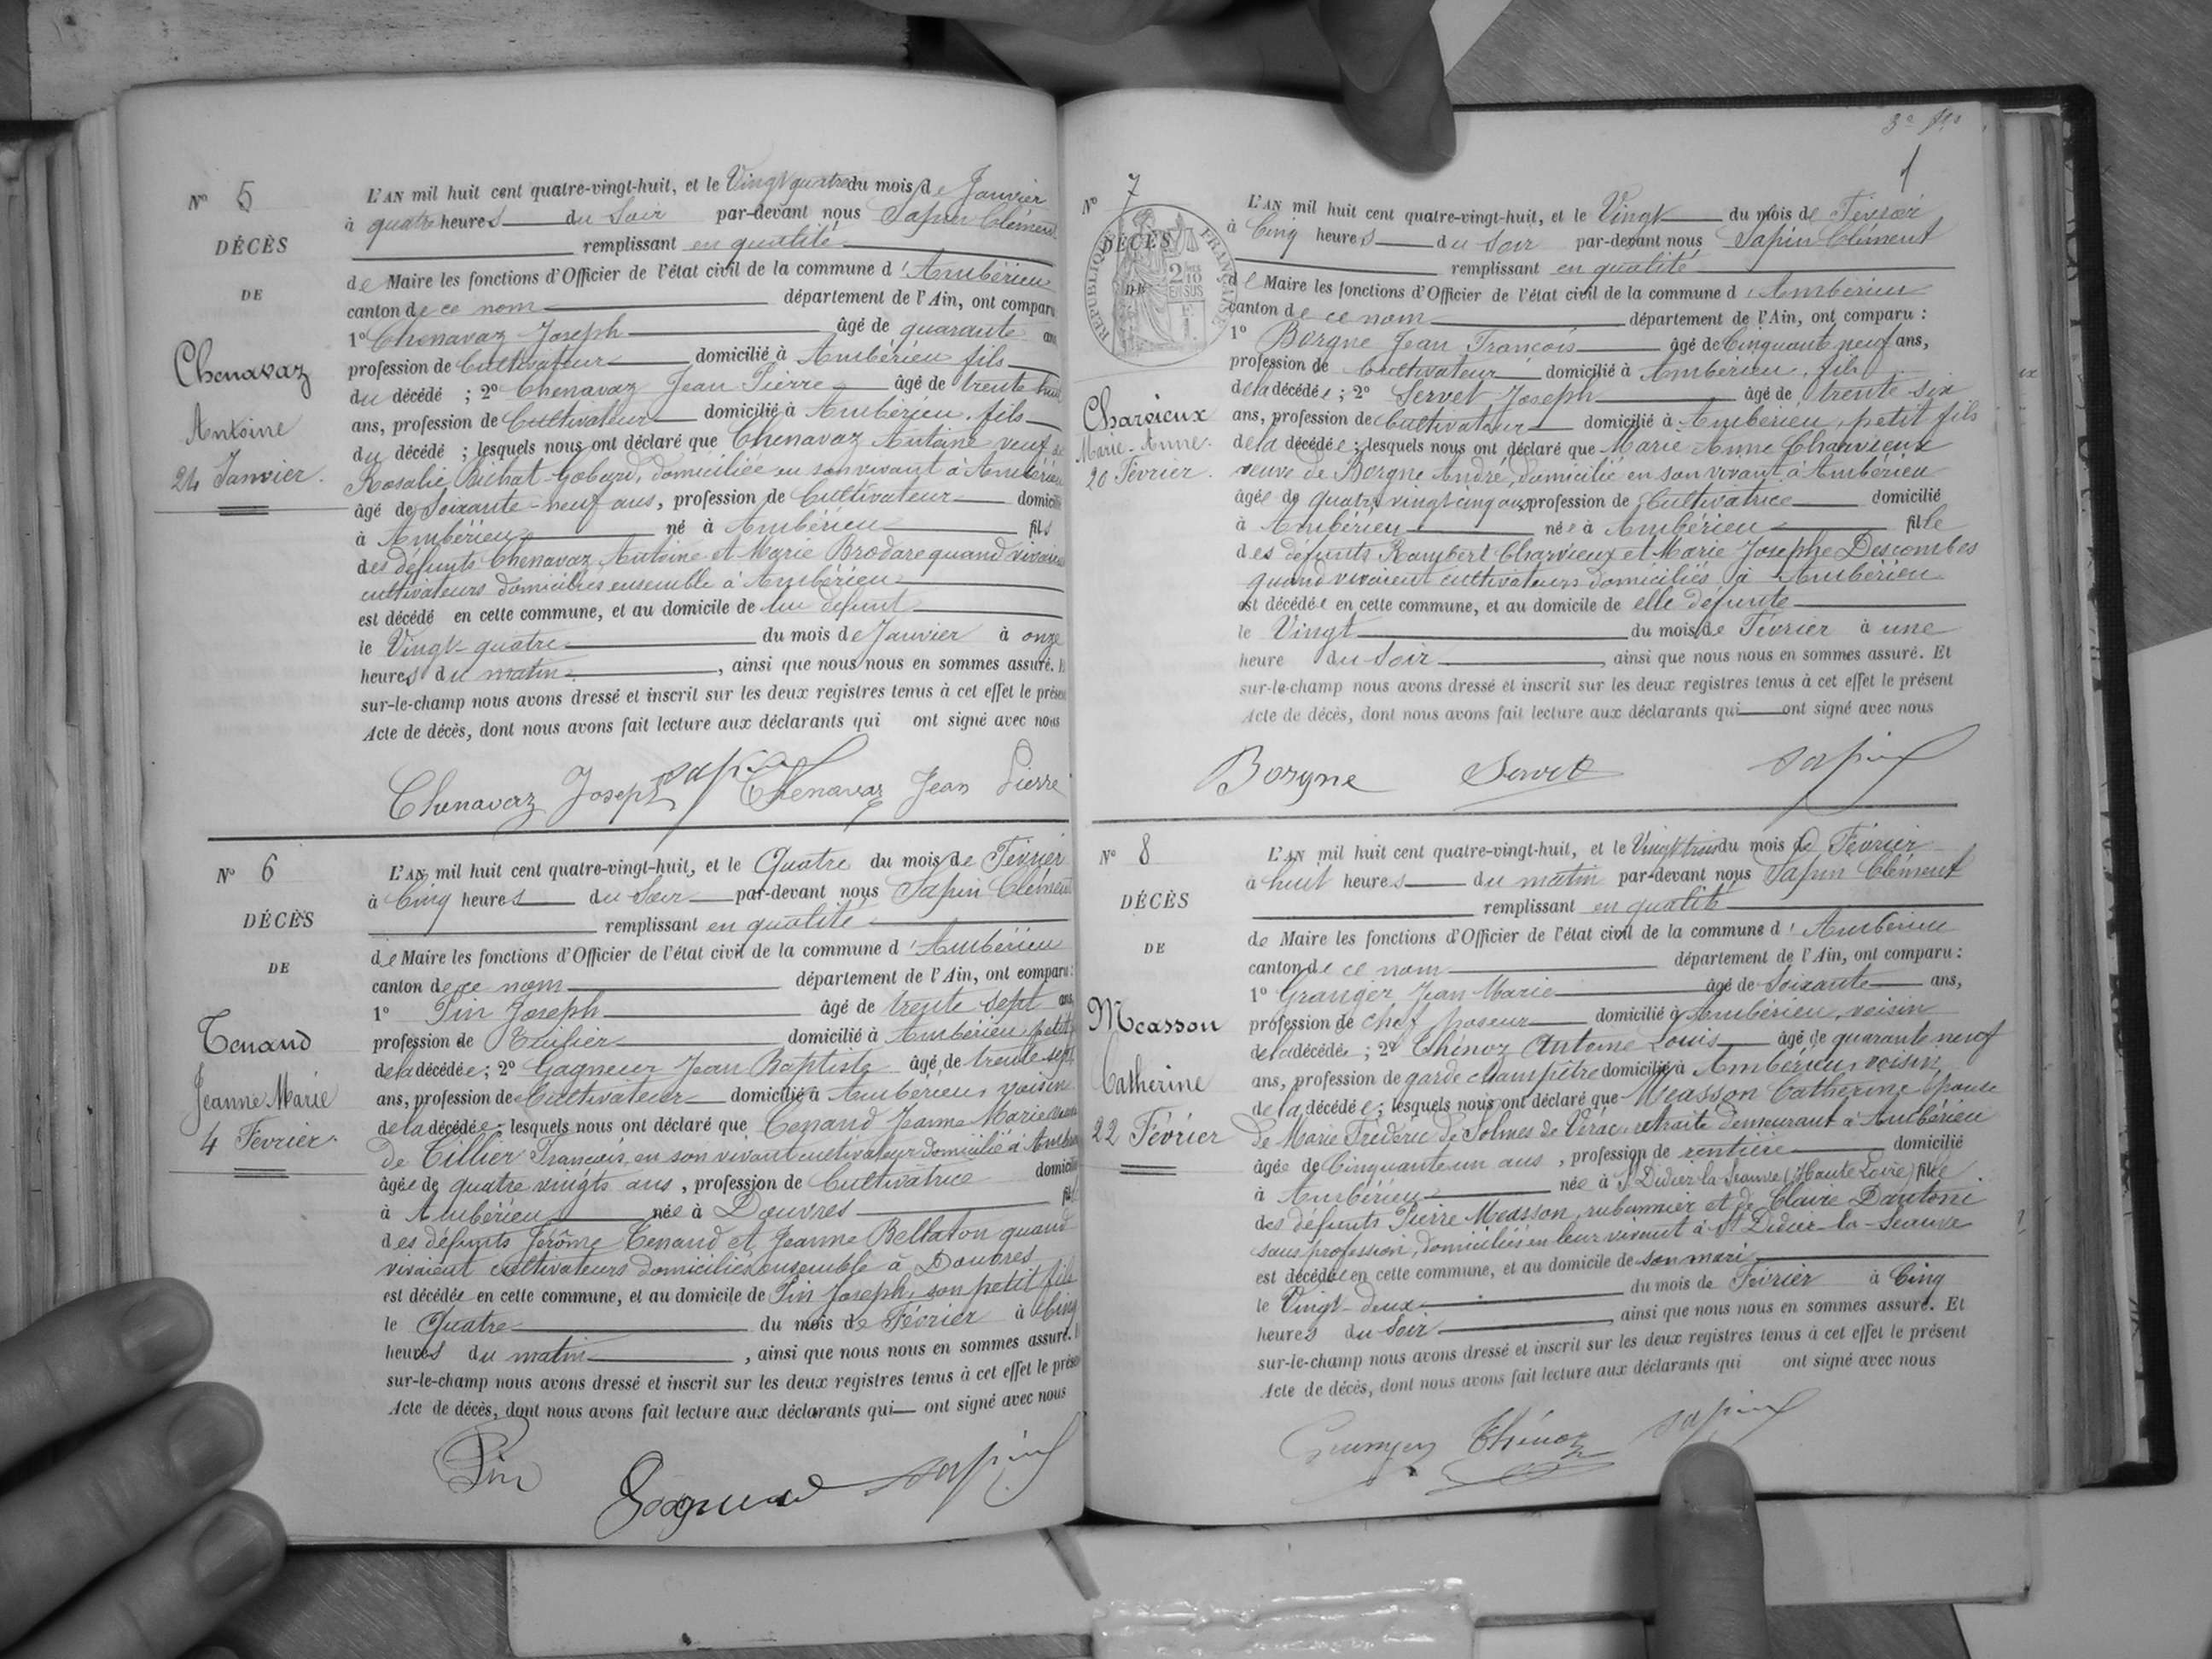 N° 5
DÉCÈS
DE
Chenavaz
Antoine
24 Janvier.
L'AN mil huit cent quatre-vingt-huit, et le Vingt quatre du mois de Janvier
à quatre heures du Soir par-devant nous Sapin Clément
remplissant en qualité
de Maire les fonctions d'Officier de l'état civil de la commune d'Ambérieu
canton de ce nom département de l'Ain, ont comparu
1° Chenavaz Joseph âgé de quarante ans
profession de Cultivateur domicilié à Ambérieu fils
du décédé ; 2° Chenavaz Jean Pierre âgé de trente huit
ans, profession de Cultivateur domicilié à Ambérieu. fils
du décédé ; lesquels nous ont déclaré que Chenavaz Antoine veuf de
Rosalie Bichat-Gobard, domiciliée en son vivant à Ambérieu
âgé de Soixante-neuf ans, profession de Cultivateur domicilié
à Ambérieu né à Ambérieu fils
des défunts Chenavaz Antoine et Marie Brodare quand vivaient
cultivateurs domiciliés ensemble à Ambérieu
est décédé en cette commune, et au domicile de lui défunt
le Vingt-quatre du mois de Janvier à onze
heures du matin, ainsi que nous nous en sommes assuré.
sur-le-champ nous avons dressé et inscrit sur les deux registres tenus à cet effet le présent
Acte de décès, dont nous avons fait lecture aux déclarants qui ont signé avec nous
Chenavaz Joseph Sapin Chenavaz Jean Pierre
N° 6
DÉCÈS
DE
Tenand
Jeanne Marie
4 Février.
L'AN mil huit cent quatre-vingt-huit, et le Quatre du mois de Février
à Cinq heures du Soir par-devant nous Sapin Clément
remplissant en qualité
de Maire les fonctions d'Officier de l'état civil de la commune d'Ambérieu
canton de ce nom département de l'Ain, ont comparu :
1° Pin Joseph âgé de trente sept ans,
profession de Tuilier domicilié à Ambérieu, petit
de la décédée ; 2° Gagneur Jean Baptiste âgé de trente-sept
ans, profession de Cultivateur domicilié à Ambérieu, voisin
de la décédée ; lesquels nous ont déclaré que Tenand Jeanne Marie veuve
de Tillier François, en son vivant cultivateur domicilié à Ambérieu
âgée de quatre vingts ans, profession de Cultivatrice domicilié
à Ambérieu née à Douvres fille
des défunts Jérôme Tenand et Jeanne Bellaton quand
vivaient cultivateurs domiciliés ensemble à Douvres
est décédée en cette commune, et au domicile de Pin Joseph, son petit fils
le Quatre du mois de Février à Cinq
heures du matin, ainsi que nous nous en sommes assuré.
sur-le-champ nous avons dressé et inscrit sur les deux registres tenus à cet effet le présent
Acte de décès, dont nous avons fait lecture aux déclarants qui ont signé avec nous
Pin Gagneur Sapin
3e
1
N° 7
DÉCÈS
DE
RÉPUBLIQUE FRANÇAISE
2/10 EN SUS
Charvieux
Marie-Anne.
20 Février.
L'AN mil huit cent quatre-vingt-huit, et le Vingt du mois de Février
à Cinq heures du Soir par-devant nous Sapin Clément
remplissant en qualité
de Maire les fonctions d'Officier de l'état civil de la commune d'Ambérieu
canton de ce nom département de l'Ain, ont comparu :
1° Borgne Jean François âgé de Cinquante neuf ans,
profession de Cultivateur domicilié à Ambérieu, fils
de la décédée ; 2° Servet Joseph âgé de trente-six
ans, profession de Cultivateur domicilié à Ambérieu, petit fils
de la décédée ; lesquels nous ont déclaré que Marie-Anne Charvieux
veuve de Borgne André, domicilié en son vivant à Ambérieu
âgée de quatre vingt cinq ans profession de Cultivatrice domicilié
à Ambérieu née à Ambérieu fille
des défunts Rambert Charvieux et Marie Josephe Descombes
quand vivaient cultivateurs domiciliés à Ambérieu
est décédée en cette commune, et au domicile de elle défunte
le Vingt du mois de Février à une
heure du Soir, ainsi que nous nous en sommes assuré. Et
sur-le-champ nous avons dressé et inscrit sur les deux registres tenus à cet effet le présent
Acte de décès, dont nous avons fait lecture aux déclarants qui ont signé avec nous
Borgne Servet Sapin
N° 8
DÉCÈS
DE
Measson
Catherine
22 Février
L'AN mil huit cent quatre-vingt-huit, et le Vingt trois du mois de Février
à huit heures du matin par-devant nous Sapin Clément
remplissant en qualité
de Maire les fonctions d'Officier de l'état civil de la commune d'Ambérieu
canton de ce nom département de l'Ain, ont comparu :
1° Granger Jean Marie âgé de Soixante ans,
profession de chef poseur domicilié à Ambérieu, voisin
de la décédée ; 2° Thénoz Antoine Louis âgé de quarante neuf
ans, profession de garde champêtre domicilié à Ambérieu, voisin
de la décédée ; lesquels nous ont déclaré que Measson Catherine épouse
de Marie Frédéric de Solmes de Vérac, retraité demeurant à Ambérieu
âgée de Cinquante un ans, profession de rentière domicilié
à Ambérieu née à St Didier-la-Seauve (Haute Loire) fille
des défunts Pierre Measson, rubannier et de Claire Dantoni
sans profession, domiciliés en leur vivant à St Didier-la-Seauve
est décédée en cette commune, et au domicile de son mari
le Vingt-deux du mois de Février à Cinq
heures du Soir, ainsi que nous nous en sommes assuré. Et
sur-le-champ nous avons dressé et inscrit sur les deux registres tenus à cet effet le présent
Acte de décès, dont nous avons fait lecture aux déclarants qui ont signé avec nous
Granger Thénoz Sapin